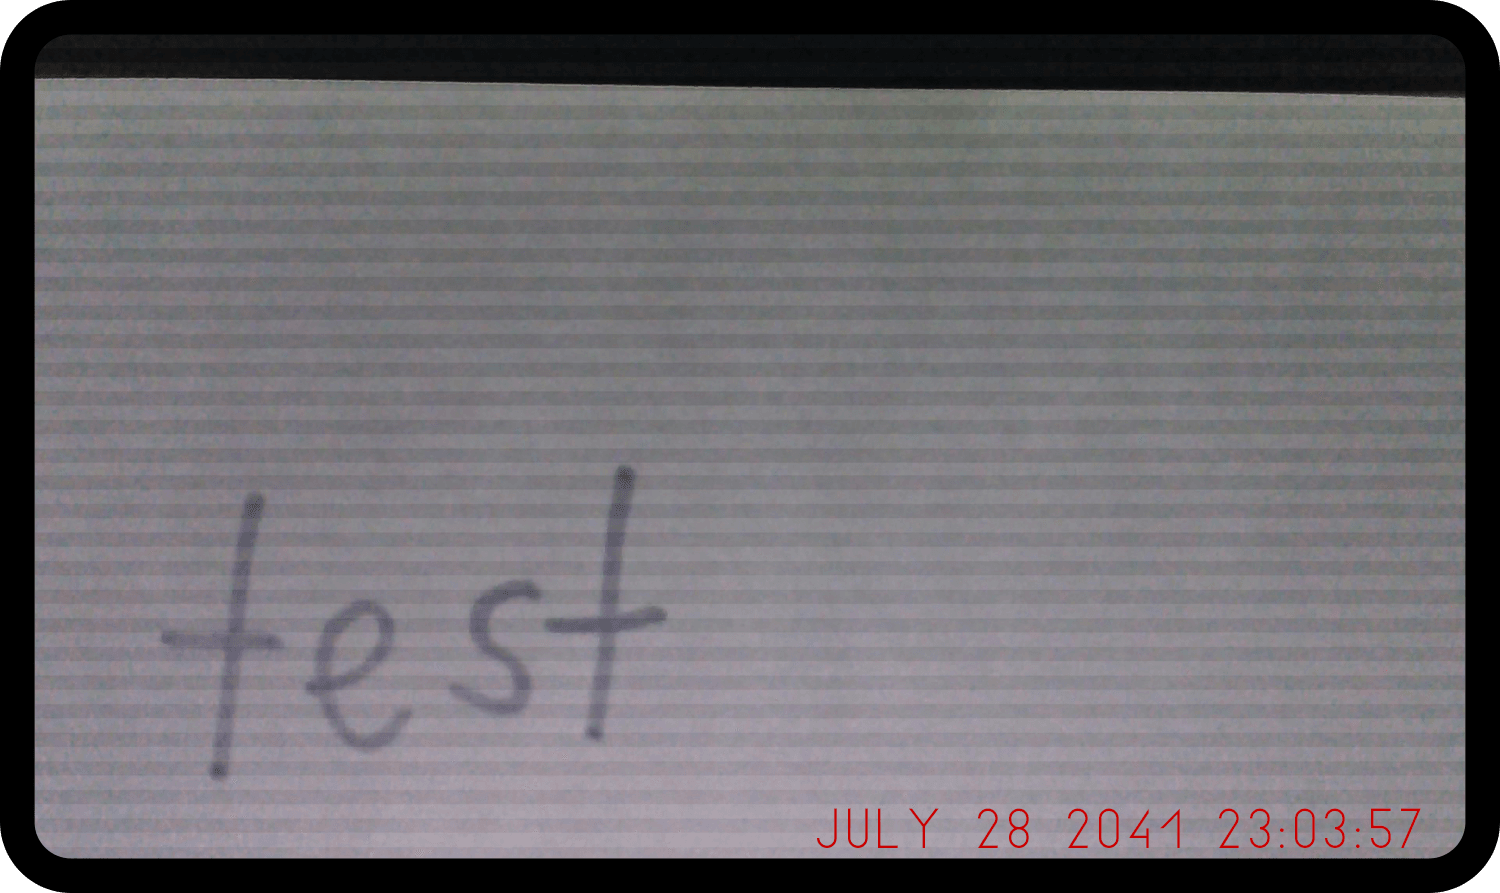 test
JULY 28 2041 23:03:57